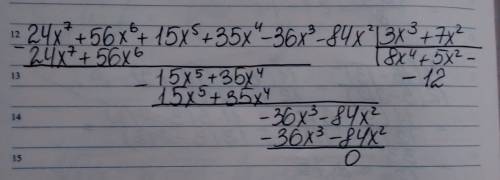 12 24x⁷+56x⁶+15x⁵+35x⁴-36x³-84x² | 3x³+7x²
- 24x⁷+56x⁶ 8x⁴+5x²-
13 - 15x⁵+35x⁴ - 12
15x⁵+35x⁴
14 -36x³-84x²
-36x³-84x²
15 0